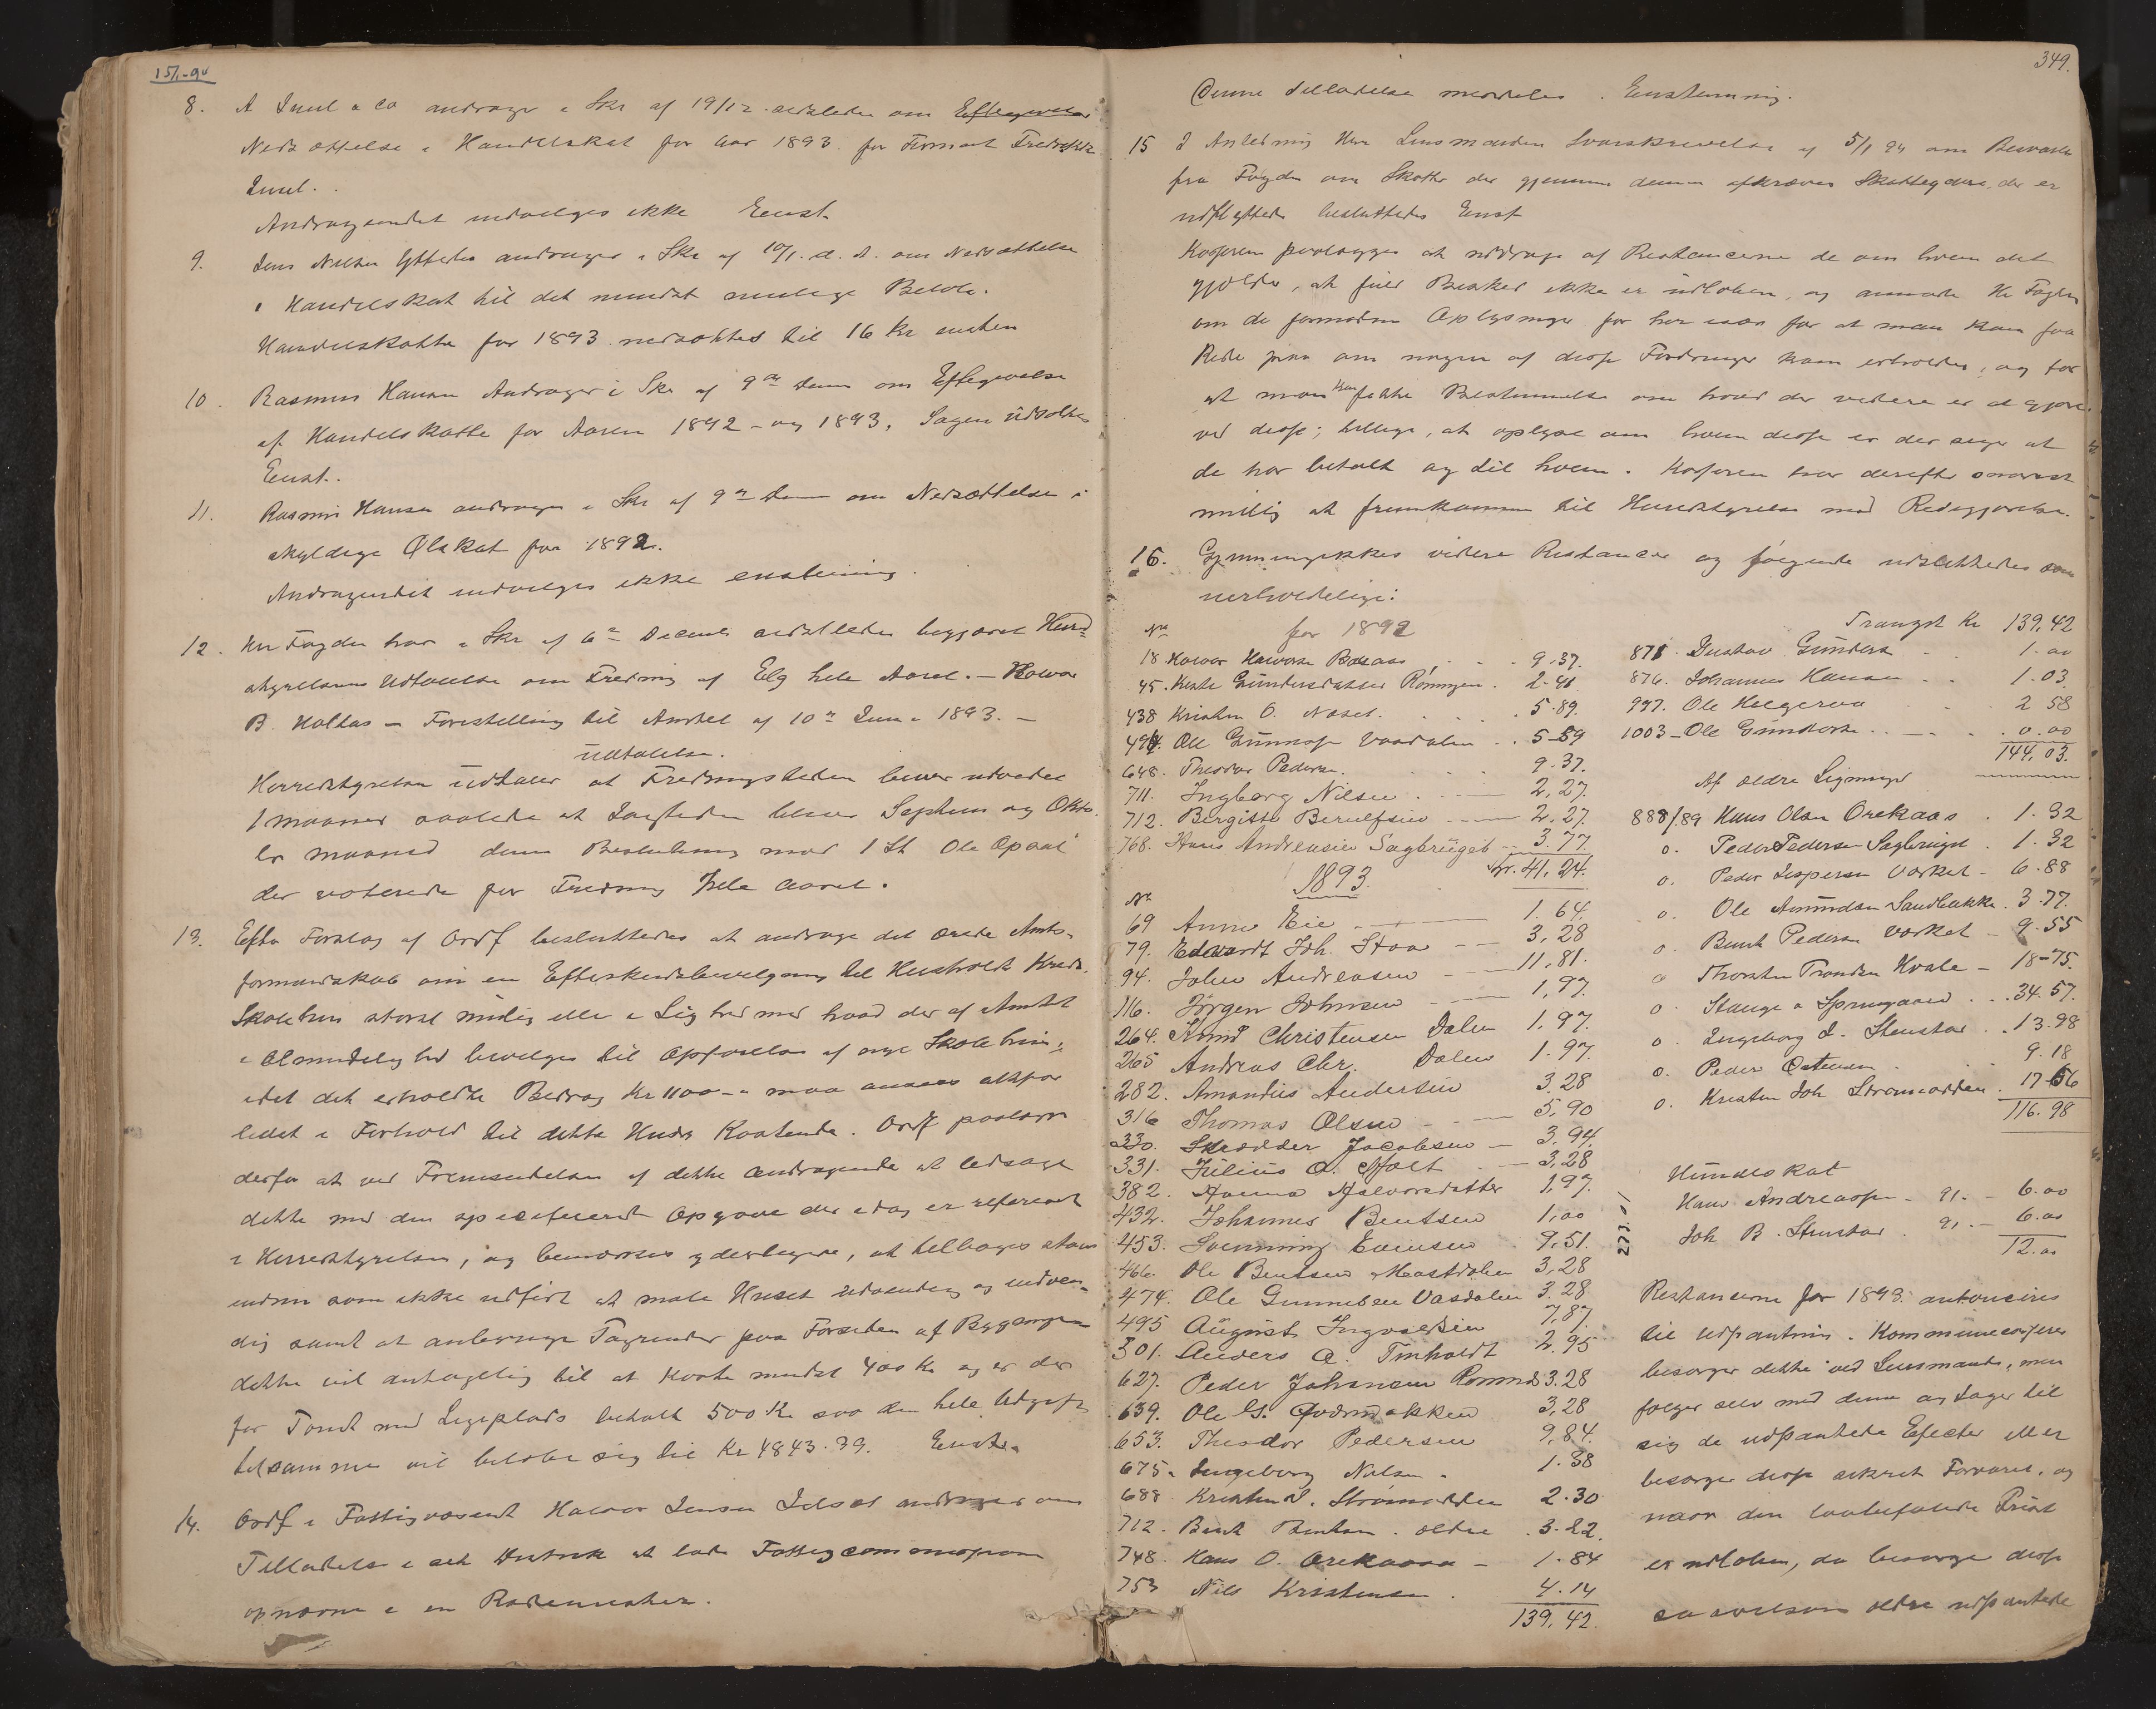 15/1-94
8. A Juul & Co andrager i Skr af 19/12 om Eftergivelse
Nedsættelse i Handelskat for Aar 1893 for Firmaet
Juul.
Andragendet indvilges ikke Eenst.
9. Jens Nilsen andrager i Skr af 10/1 d. A. om Nedsættelse
i Handelskat til det mindst mulige Beløb.
Handelskatten for 1893 nedsættes til 16 Kr
10. Rasmus Hansen Andrager i Skr af 9de dennes om Eftergivelse
af Handelskatte for Aaren 1892 - og 1893. Sagen udsættes
Eenst.
11. Rasmus Hansen andrager i Skr af 9de dennes om Nedsættelse i
skyldige Ølskat for 1892.
Andragendet indvilges ikke enstemmig.
12. Hr Fogden har i Skr af 6te Decemb begjæret Herred-
styrelsens Udtalelse om Fredning af Elg hele Aaret. - Halvor
B. Holtas - Forestilling til Amtet af 10de Juni 1893. -
Udtalelse.
Herredstyrelsen udtaler at Fredningstiden bliver udvidet
1 maaned saaledes at Jagttiden bliver Septemb og Oktb.
maaned denne Beslutning mod 1 St Ole Opaal
der voterede for Fredning hele Aaret.
13. Efter Forslag af Ordf besluttedes at andrage det ærede Amts-
formandskab om en Efterskudsbevilgning til Heisholdt Kreds.
Skolehus størst mulig eller i Lighed med hvad der af Amtet
i Almindelighed bevilges til Opførelse af nye Skolehuse,
idet det erholdte Bidrag Kr 1100 - maa ansees altfor
lidet i Forhold til dette Huses Kostende. Ordf paalagt
derfor at ved Fremsendelsen af dette Andragende at ledsage
dette med den specificerede Opgave der idag er refereret
i Herredstyrelsen, og bemærkes yderligere, at tilbages staar
endnu som ikke udført at male Huset udvendig og indven-
dig samt at anbringe Tagrender paa Forsiden af Bygningen
dette vil antagelig til at koste mindst 400 Kr og er der
for Tomt med Legeplads betalt 500 Kr saa den hele Udgift
tilsammen vil beløbe sig til Kr 4843.99. Eenst.
14. Ordf i Fattigvæsenet Halvor Jensen andrager om
Tilladelse i sit Distrikt at lade Fattigcommissionen
opnævne i en Rodemester.
349.
Denne Tilladelse meddeles. Enstemmig.
15 I Anledning Herr Lensmanden Svarskrivelse af 5/1 94 om Besvarelse
fra Fogden om Skatter der gjennem denne afkræves Skatteydere, der er
udflyttede besluttedes Eenst
Kassereren paalægges at uddrage af Restancerne de om hvem det
gjælder, at fuld Besked ikke er indløben, og anmode Hr Fogden
om de fornødne Oplysninger for hver især for at man kan faa
Rede paa om nogen af disse Fordringer kan erholdes, og for
at man kan fatte Bestemmelse om hvad der videre er at gjøre
ved disse; tillige, at oplyse om hvem disse er der siger at
de har betalt og til hvem. Kassereren har derefter snarest
mulig at fremkomme til Herredstyrelsen med Redegjørelse.
16. Gjennemgikkes videre Restancer og følgende udslettedes som
uerholdelige:
No for 1892
18 Halvor Halvorsen . . 9.37.
45. Kirsti Gundersdatter Rønningen. 2.41
438 Kristen O. Naset. . . . 5.89.
494. Ole Gunnufsen Vaadalen . . 5-89
648. Theodor Pedersen. . . 9.37.
711. Ingborg Nilsen . 2,27.
712. Birgitte Berulfsen 2.27.
768. Hans Andreasen Sagbruget 3.77.
Kr. 41,24.
No 1893.
69 Anne Eie 1.64.
79. Edvardt Joh. Stoa 3,28
94. Johan Andreasen 11,81.
116. Jörgen Johnsen 1,97.
264. Knud Christensen Dalen 1,97.
265 Andreas Chr. Dalen 1.97.
282. Amandus Andersen 3.28
316 Thomas Olsen 5,90
330. Skrædder Jacobsen 3,94.
331. Julius A. Holt 3,28
382. Hanna Halvorsdatter 1,97.
432. Johannes Bentsen 1,00
453. Svenning Evensen 9,51.
466. Ole Bentsen Mostdalen 3,28
474. Ole Gunnulsen Vasdalen 3.28
495 August Ingvaldsen 7,87.
501. Anders A. Tinholdt 2,95
627. Peder Johansen 3.28
639. Ole G. 3,28
653. Theodor Pedersen 9,84.
675. Ingeborg Nilsen 1.38
688 Kristen Strømodden 2.30
712. Bent Bentsen. ældre . 3.22.
748. Hans O. Orekaasa - 1.84
753 Nils Kristensen. 4.14
139,42.
Transpt Kr 139,42
871. Gustav Gunders 1.00
876. Johannes Hansen 1.03
997. Ole Helgersen 2 58
1003 - Ole . . 0.00
144,03.
Af ældre Ligninger
888/89 Hans Olsen Orekaas . 1.32
o. Peder Pedersen Sagbruget . 1.32
o. Peder Jespersen Værket - 6.88
o. Ole Amundsen Sandbakke. 3.77.
o Bent Pedersen Værket - 9.55
o Thorsten Trondsen Kvale - 18-75.
o. Stange a . . 34.57.
o. Ingeborg J. Stenstad . . 13.98
o. Peder 9.18
o. Kristen Joh Strømodden . 17-66
116.98
273.01
Hundeskat
Hans Andreassen - 91. - 6.00
Joh B. Stenstad . 91. - 6.00
12.00
Restancerne for 1893 antoriseres
til Udpantning. Kommunecasserer
besørger dette ved Lensmand, men
følger selv med denne og tager til
sig de udpantede Efecter eller
besørger disse sikkret Forvaret, og
naar den lovbefalede Frist
er udløben, da besørge disse
saavelsom ældre udpantede